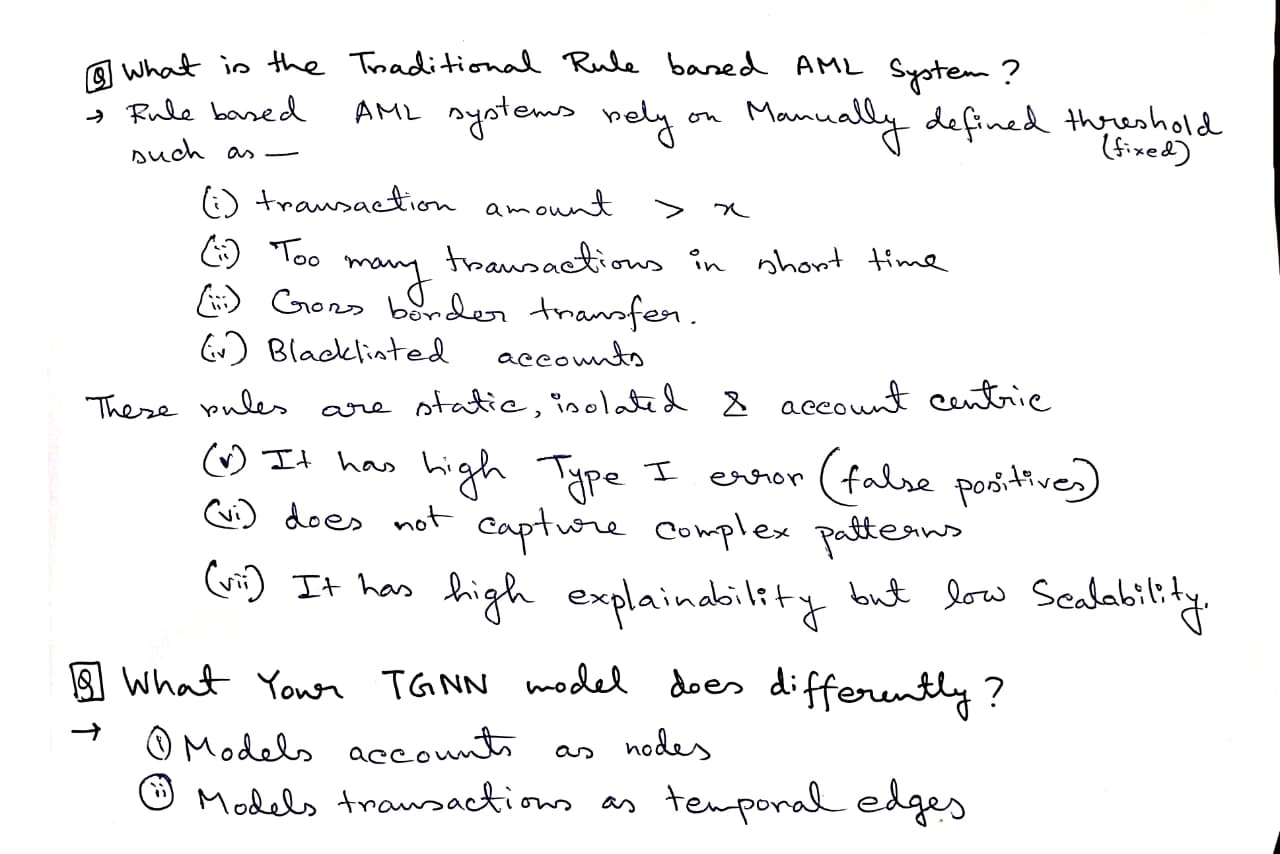 Q What is the Traditional Rule based AML System?
→ Rule based AML systems rely on Manually defined threshold
such as — (fixed)
(i) transaction amount > x
(ii) Too many transactions in short time
(iii) Cross border transfer.
(iv) Blacklisted accounts
These rules are static, isolated & account centric
(v) It has high Type I error (false positives)
(vi) does not capture complex patterns
(vii) It has high explainability but low Scalability.
Q What Your TGNN model does differently?
→ (i) Models accounts as nodes
(ii) Models transactions as temporal edges